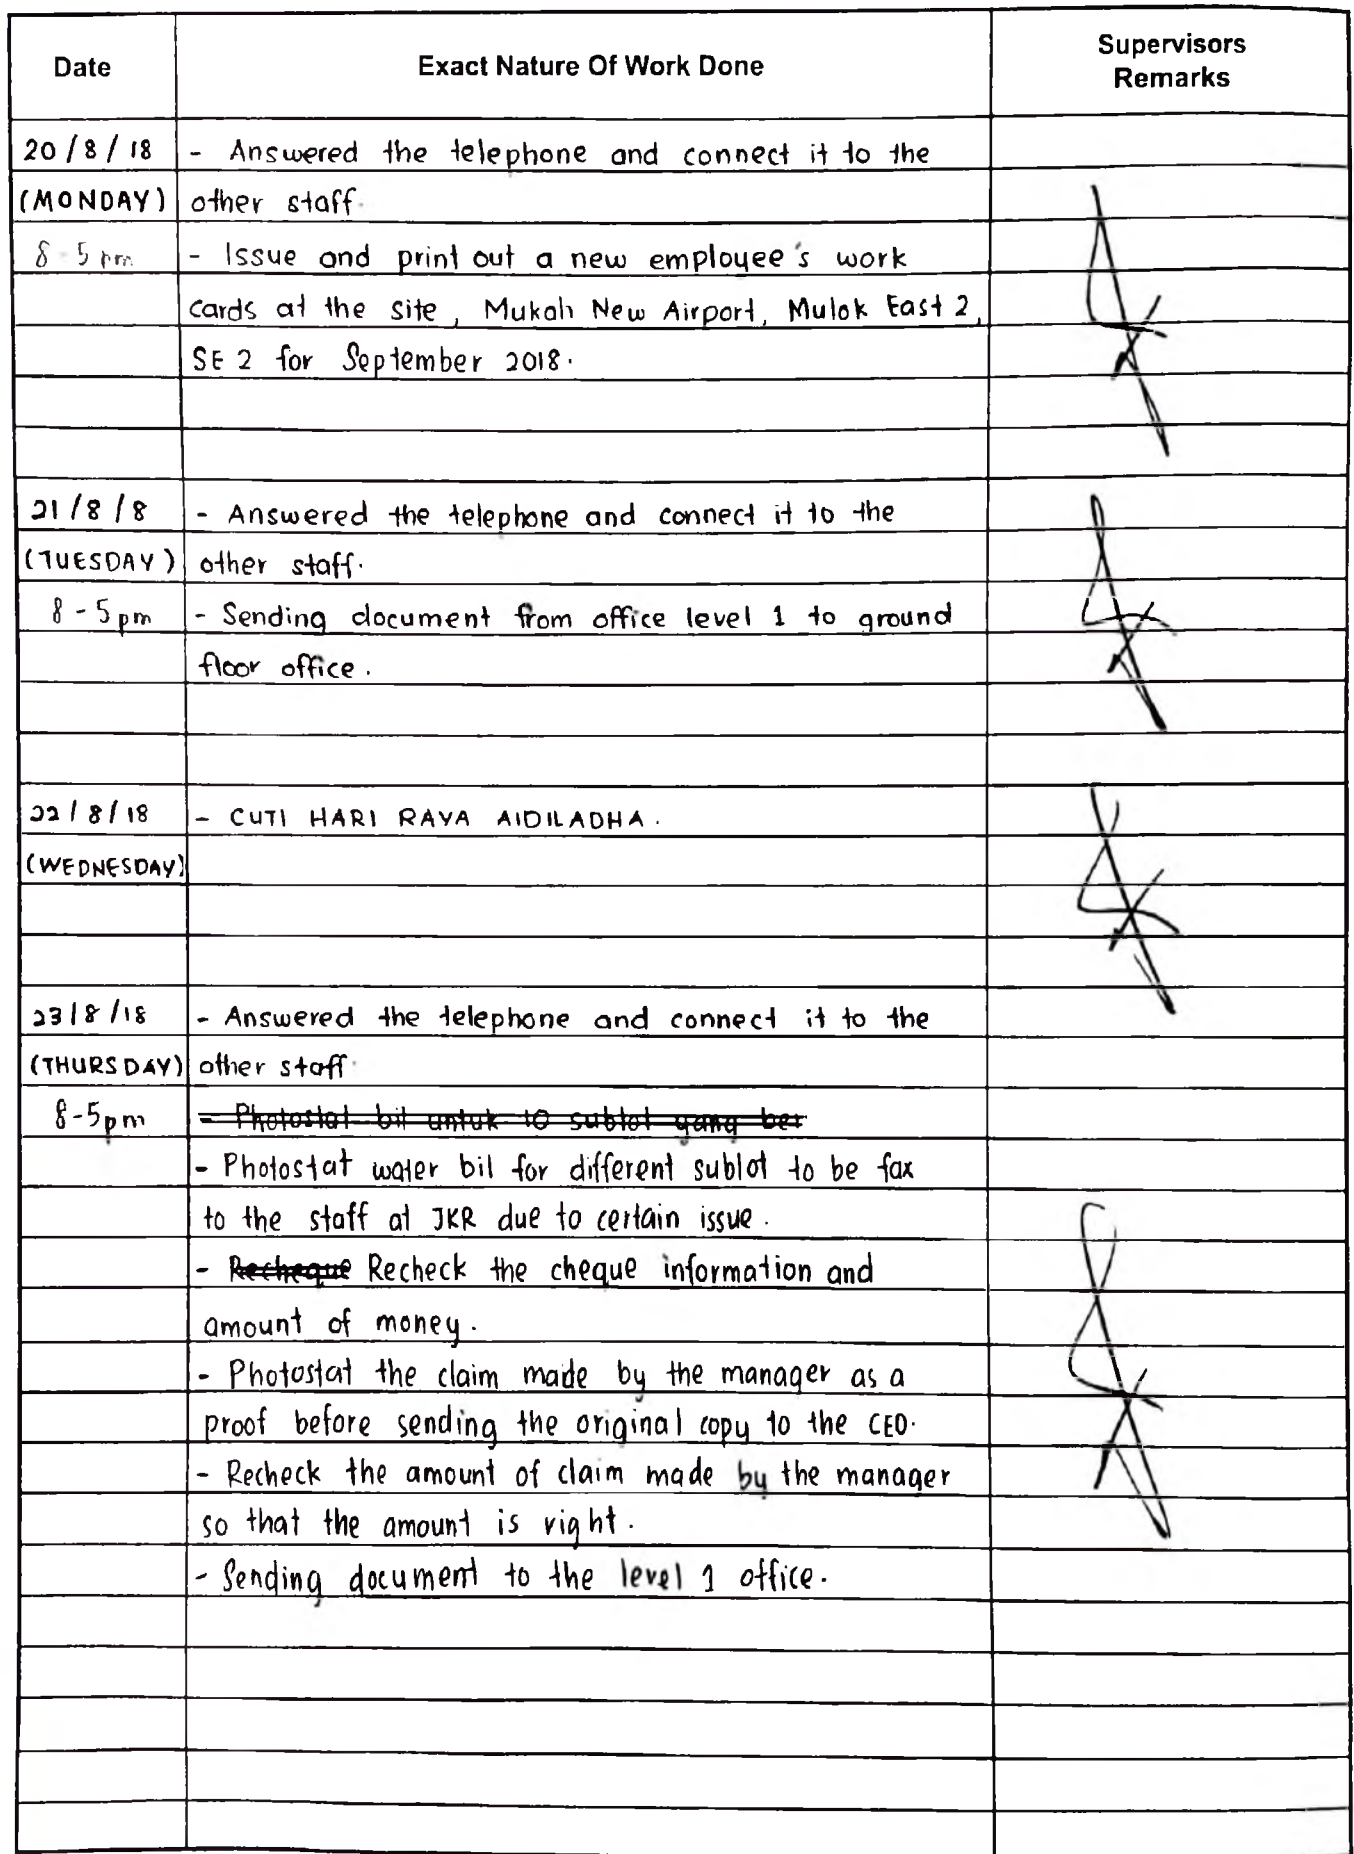 Date Exact Nature Of Work Done Supervisors
Remarks
20/8/18 - Answered the telephone and connect it to the
(MONDAY) other staff.
8-5pm - Issue and print out a new employee's work
cards at the site, Mukah New Airport, Mulok East 2,
SE 2 for September 2018.
21/8/8 - Answered the telephone and connect it to the
(TUESDAY) other staff.
8-5pm - Sending document from office level 1 to ground
floor office.
22/8/18 - CUTI HARI RAYA AIDILADHA.
(WEDNESDAY)
23/8/18 - Answered the telephone and connect it to the
(THURSDAY) other staff.
8-5pm - Photostat bil untuk 10 sublot yang ber
- Photostat water bil for different sublot to be fax
to the staff at JKR due to certain issue.
- Recheque Recheck the cheque information and
amount of money.
- Photostat the claim made by the manager as a
proof before sending the original copy to the CEO.
- Recheck the amount of claim made by the manager
so that the amount is right.
- Sending document to the level 1 office.